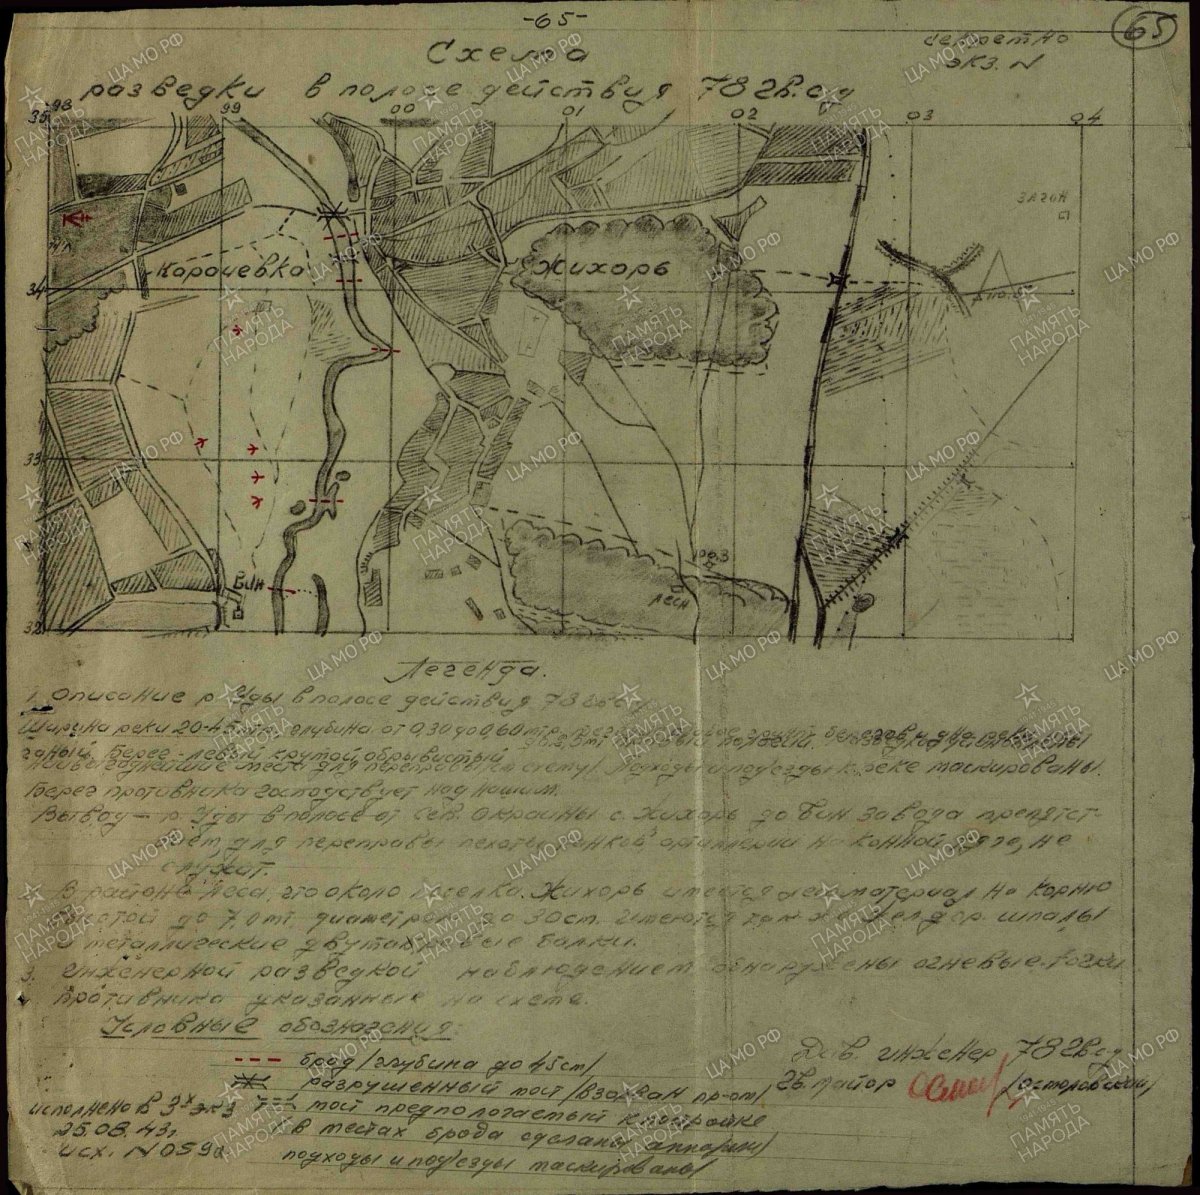 -65-
65
Схема
секретно
экз. N
разведки в полосе действия 78 гв. сд
98 99 00 01 02 03 04
35
загон
Корачевка
Жихорь
34
33
раз.
Вин
лесн
32
Легенда.
1. Описание р. Уды в полосе действия 78 гв сд
Ширина реки 20-45 мтр глубина от 0,30 до 0,60 мтр
Берег - левый крутой обрывистый
места для переправы см схему/ Подходы и под'езды к реке маскированы.
Берег противника господствует над нашим.
Вывод - р. Уды в полосе от Сев. Окраины с. Жихорь до Вин завода препятст-
для переправы пехоты артиллерии на конной тяге, не
служат.
2. В районе леса, что около поселка Жихорь имеется лесоматериал на корню
высотой до 7,0 т. диаметром до 30 см. имеются там же жел. дор. шпалы
и металлические двутавровые балки.
3. инженерной разведкой наблюдением обнаружены огневые точки
противника указанные на схеме.
Условные обозначения:
брод /глубина до 45 см/
разрушенный мост /взорван пр-ом/
мост предпологаемый к постройке
в местах брода сделаны аппарели/
подходы и под'езды маскированы/
Див. инженер 78 гв сд
гв. майор /Осмоловский/
исполнено в 3х экз
25.08.43г.
исх. N 059а
ПАМЯТЬ НАРОДА
ЦА МО РФ